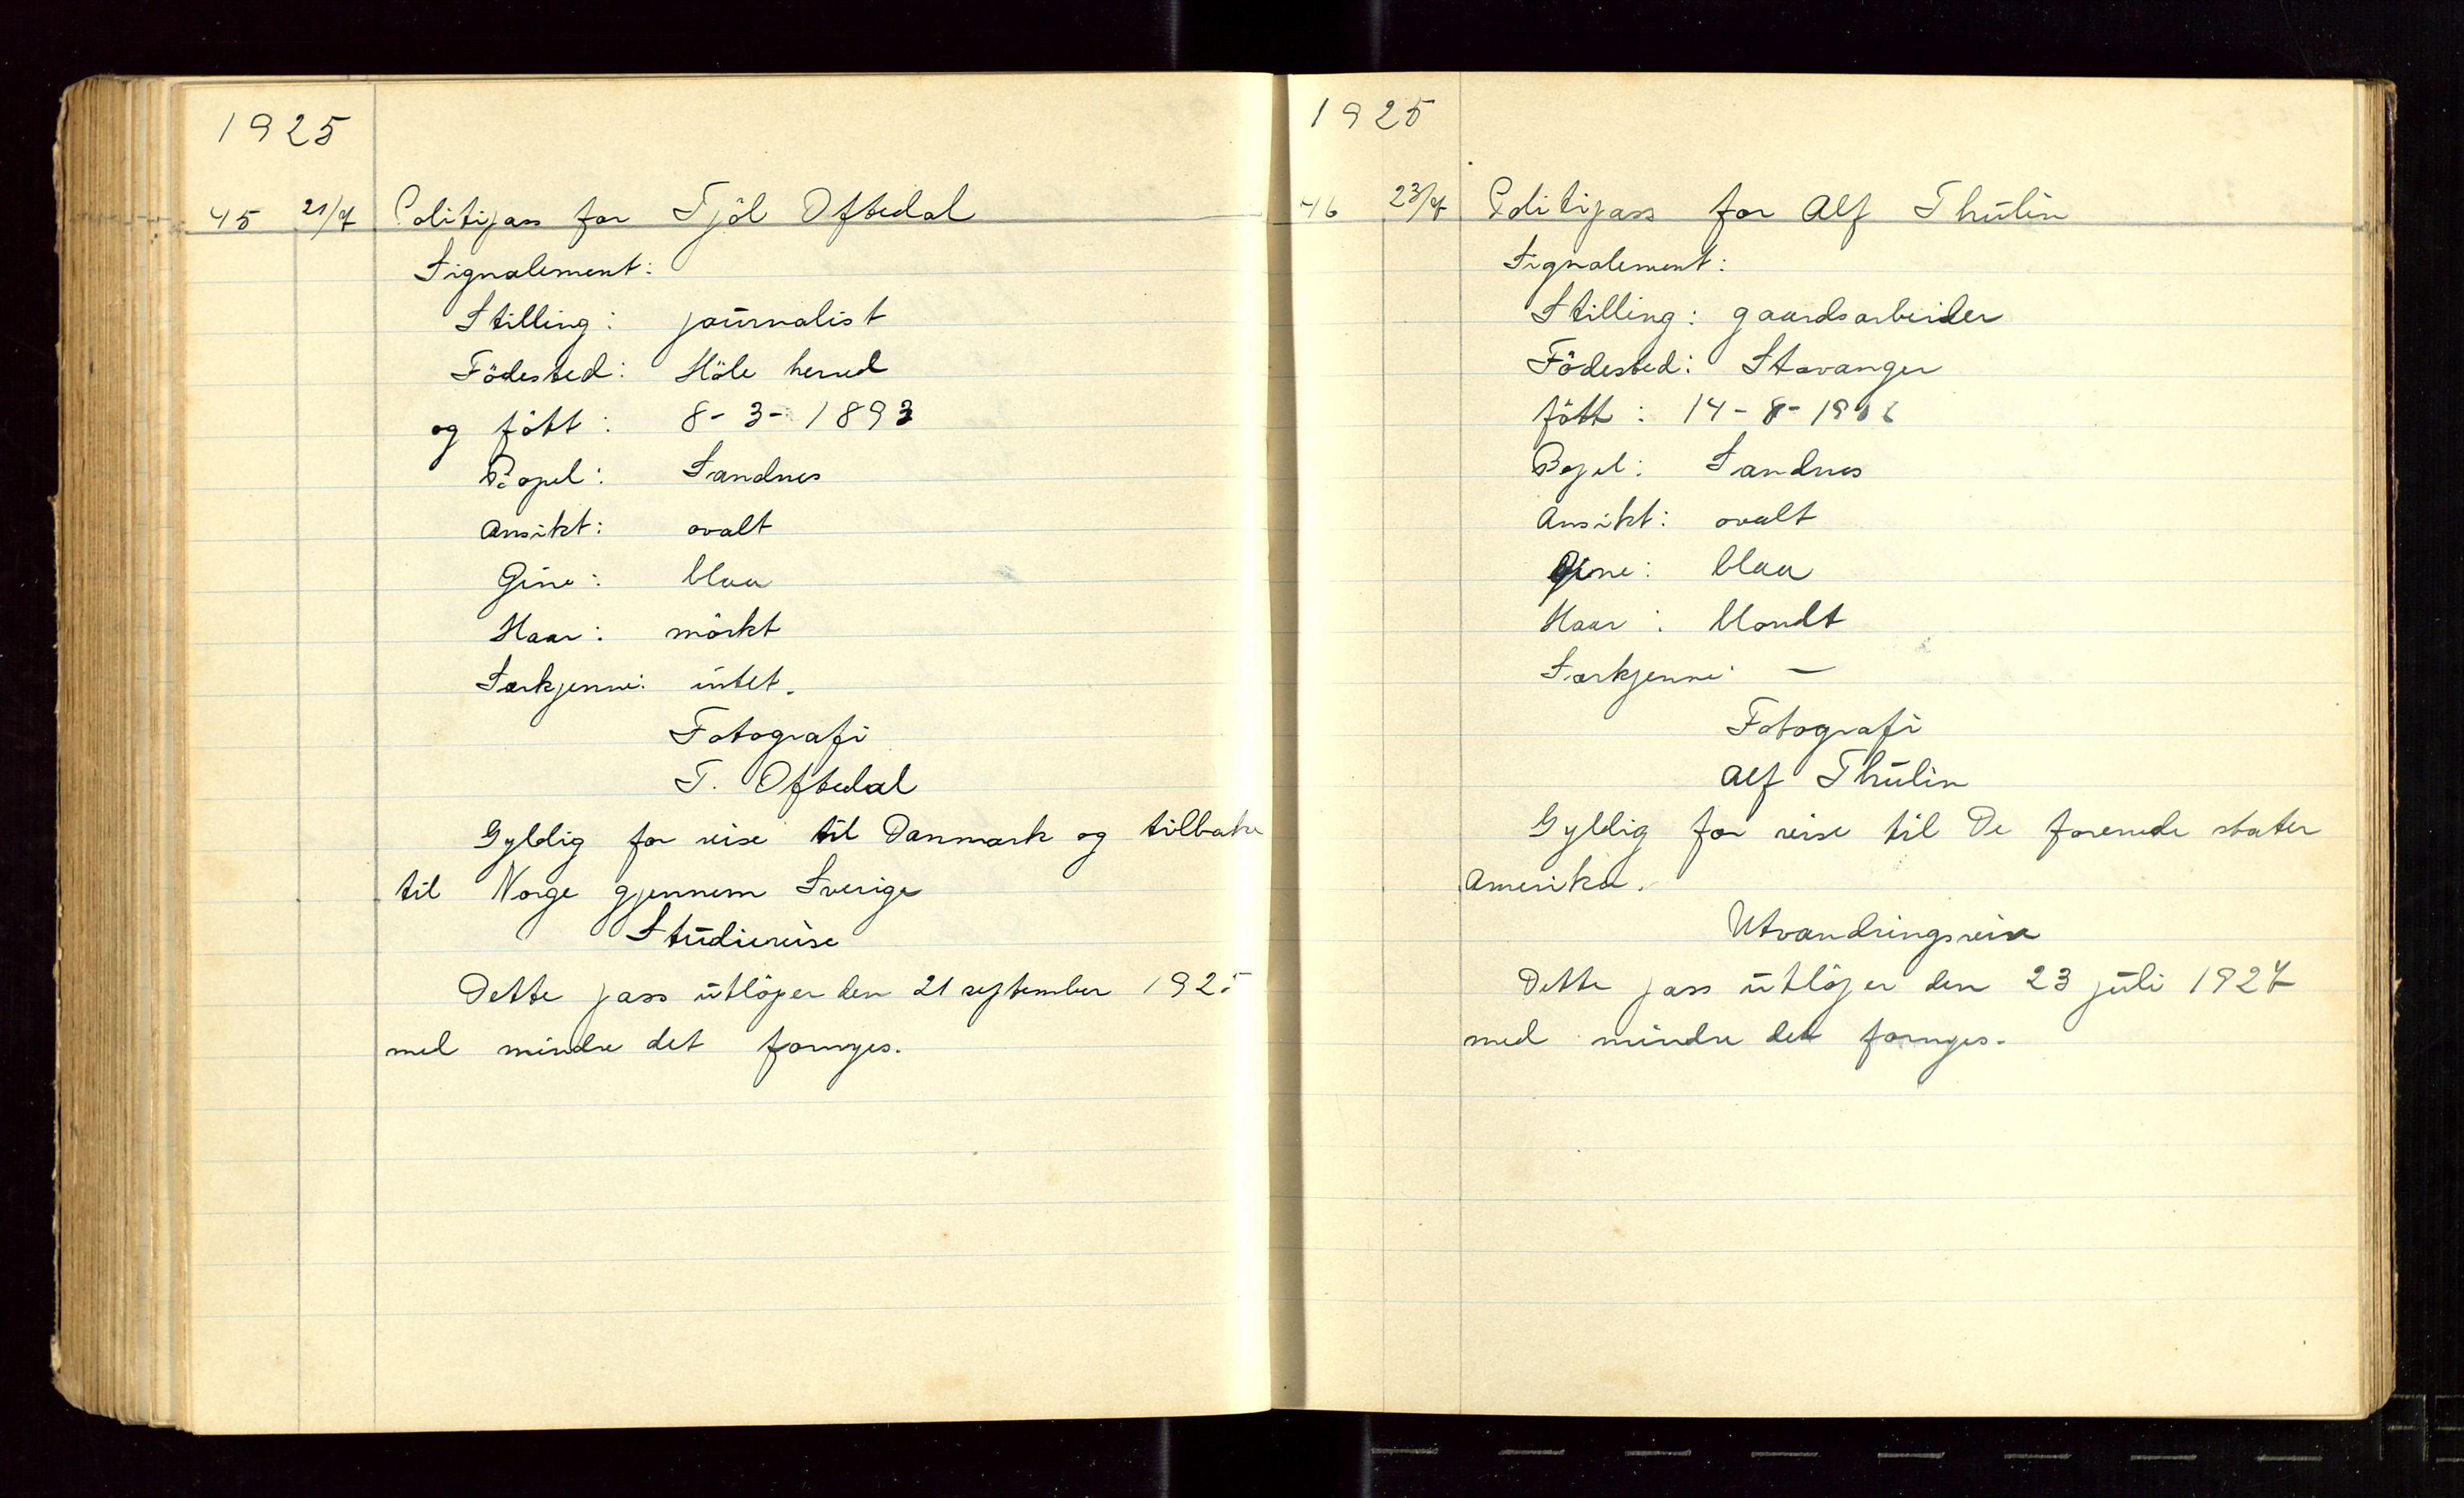 1925
45 21/7 Politipass for Tjöl Oftedal
Signalement:
Stilling: journalist
Födested: Höle herred
og fött: 8-3-1893
Bopel: Sandnes
Ansikt: ovalt
Öine: blaa
Haar: mörkt
Særkjenne: intet.
Fotografi
T. Oftedal
Gyldig for reise til Danmark og tilbake
til Norge gjennem Sverige
Studiereise
Dette pass utlöper den 21 september 1925
med mindre det fornyes.
1925
46 23/7 Politipass for Alf Thulin
Signalement:
Stilling: gaardsarbeider
Födested: Stavanger
fött: 14-8-
Bopel: Sandnes
Ansikt: ovalt
Öine: blaa
Haar: blondt
Særkjenne: —
Fotografi
Alf Thulin
Gyldig for reise til De forenede stater
Amerika.
Utvandringsreise
Dette pass utlöper den 23 juli 1927
med mindre det fornyes.